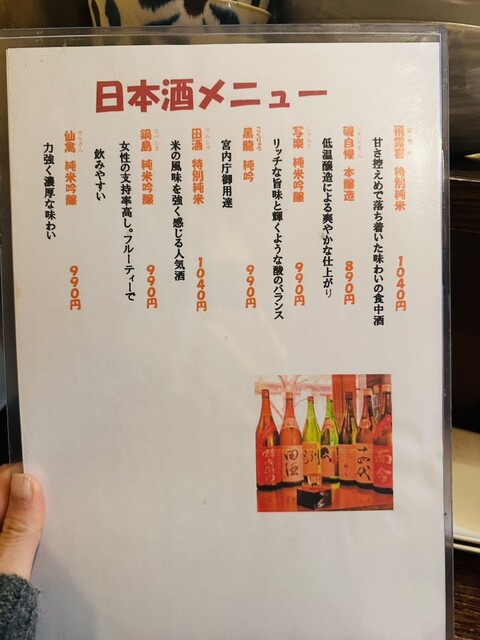 日本酒メニュー
飛露喜 特別純米 1040円
甘さ控えめで落ち着いた味わいの食中酒
磯自慢 本醸造 890円
低温醸造による爽やかな仕上がり
写楽 純米吟醸 990円
リッチな旨味と輝くような酸のバランス
黒龍 純吟 990円
宮内庁御用達
田酒 特別純米 1040円
米の風味を強く感じる人気酒
鍋島 純米吟醸 990円
女性の支持率高し。フルーティーで
飲みやすい
仙禽 純米吟醸 990円
力強く濃厚な味わい
田酒
十四代
而今